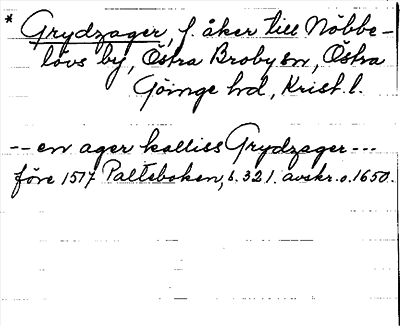 * Grydzager, f. åker till Nöbbe-
lövs by, Östra Broby sn, Östra
Göinge hd, Krist. l.
-- en ager kalliss Grydzager ---
före 1517 Paltebokan, s. 321. avskr. o. 1650.